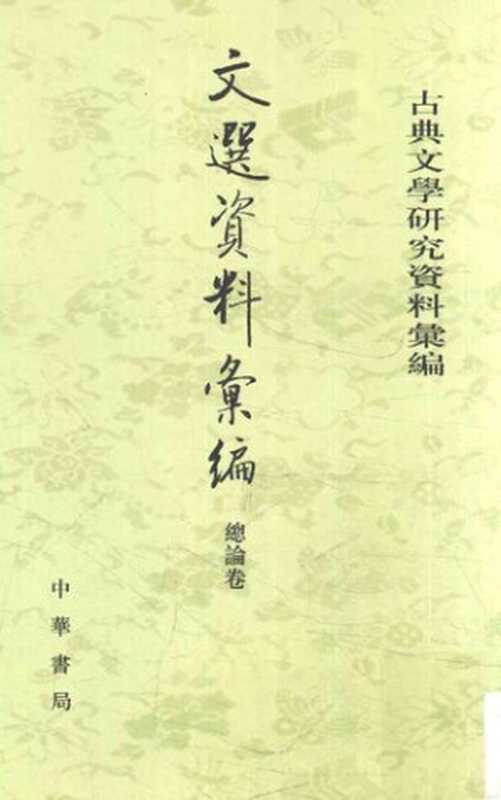 古典文學研究資料彙編
文選資料彙編
總論卷
中華書局